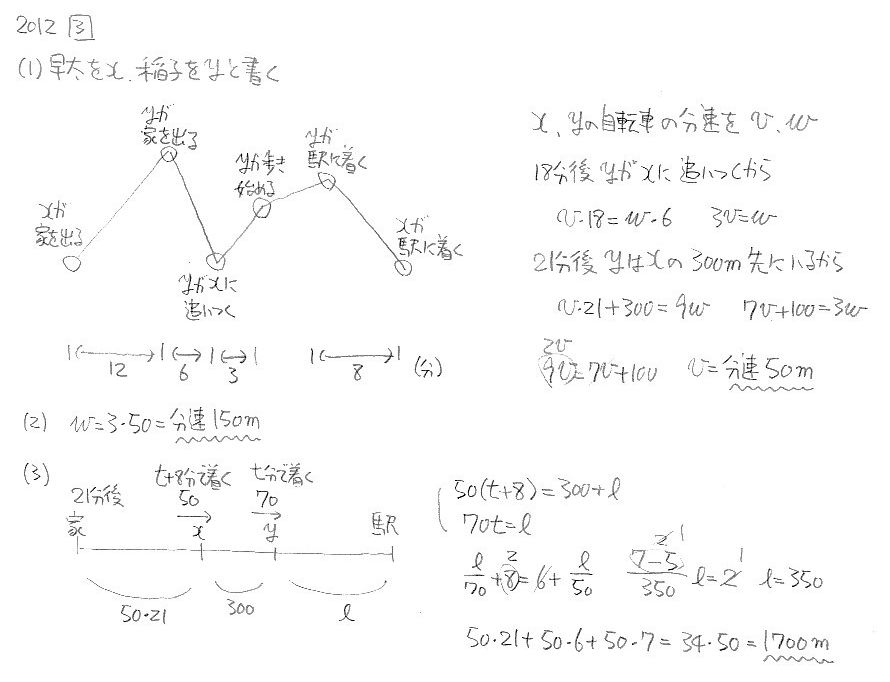 2012 3
(1) 早太をx, 稲子をyと書く
yが
家を出る
yが歩き
始める
yが
駅に着く
xが
家を出る
xが
駅に着く
yがxに
追いつく
12 6 3 8 (分)
x, yの自転車の分速を v, w
18分後 yがxに追いつくから
v・18=w・6 3v=w
21分後 yはxの300m先にいるから
v・21+300=9w 7v+100=3w
2v
9v=7v+100 v=分速50m
(2) w=3・50=分速150m
(3)
21分後
家
t+8分で着く
50
x
t分で着く
70
y
駅
50・21 300 l
50(t+8)=300+l
70t=l
l/70+8=6+l/50 2
(7-5)/350 l=2 2 1 1 l=350
50・21+50・6+50・7=34・50=1700m